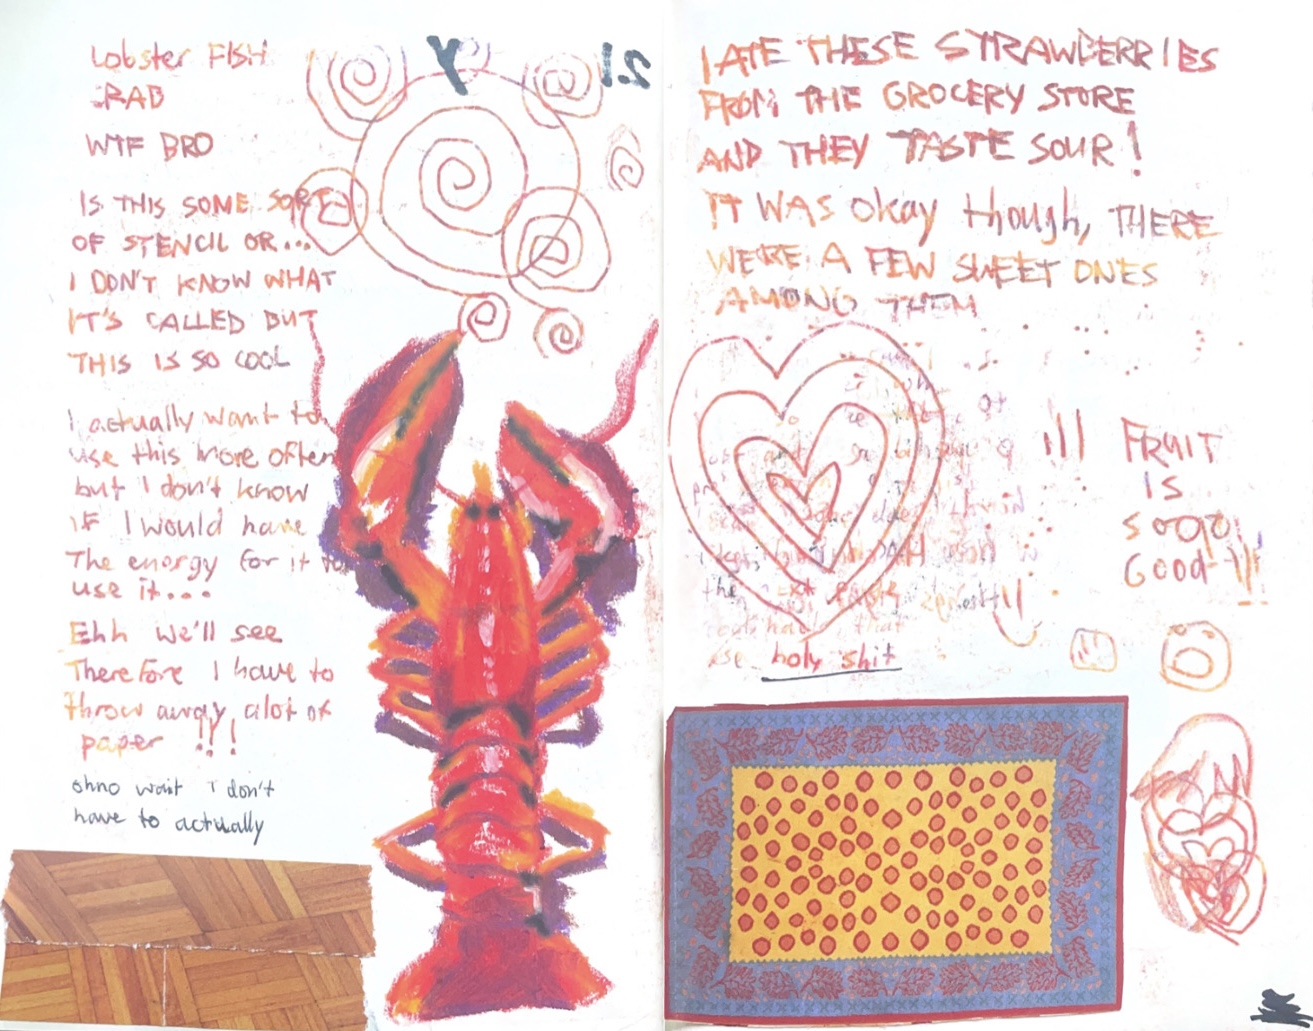 Lobster FISH
CRAB
WTF BRO
IS THIS SOME SORT
OF STENCIL OR...
I DON'T KNOW WHAT
IT'S CALLED BUT
THIS IS SO COOL
I actually want to
use this more often
but I don't know
if I would have
The energy for it to
use it...
Ehh we'll see
Therefore I have to
throw away alot of
paper !!!
ohno wait I don't
have to actually
I ATE THESE STRAWBERRIES
FROM THE GROCERY STORE
AND THEY TASTE SOUR!
IT WAS okay though, THERE
WERE A FEW SWEET ONES
AMONG THEM
!!! FRUIT
IS
SOOO
GOOD !!!
the
that
use holy shit